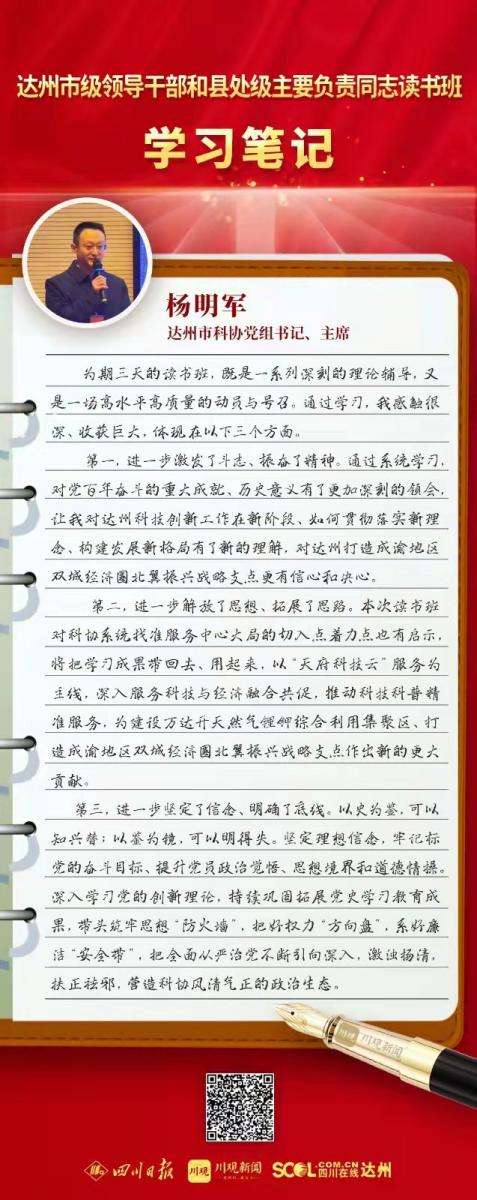 达州市级领导干部和县处级主要负责同志读书班
学习笔记
杨明军
达州市科协党组书记、主席
为期三天的读书班，既是一系列深刻的理论辅导，又
是一场高水平高质量的动员与号召。通过学习，我感触很
深、收获巨大，体现在以下三个方面。
第一，进一步激发了斗志、振奋了精神。通过系统学习，
对党百年奋斗的重大成就、历史意义有了更加深刻的领会，
让我对达州科技创新工作在新阶段、如何贯彻落实新理
念、构建发展新格局有了新的理解，对达州打造成渝地区
双城经济圈北翼振兴战略支点更有信心和决心。
第二，进一步解放了思想、拓展了思路。本次读书班
对科协系统找准服务中心大局的切入点着力点也有启示，
将把学习成果带回去、用起来，以“天府科技云”服务为
主线，深入服务科技与经济融合共促，推动科技科普精
准服务，为建设万达开天然气锂钾综合利用集聚区、打
造成渝地区双城经济圈北翼振兴战略支点作出新的更大
贡献。
第三，进一步坚定了信念、明确了底线。以史为鉴，可以
知兴替；以鉴为镜，可以明得失。坚定理想信念，牢记标
党的奋斗目标、提升党员政治觉悟、思想境界和道德情操。
深入学习党的创新理论，持续巩固拓展党史学习教育成
果，带头筑牢思想“防火墙”，把好权力“方向盘”，系好廉
洁“安全带”，把全面从严治党不断引向深入，激浊扬清，
扶正祛邪，营造科协风清气正的政治生态。
川观新闻
四川日报 川观 川观新闻 SCOL.COM.CN 四川在线 达州